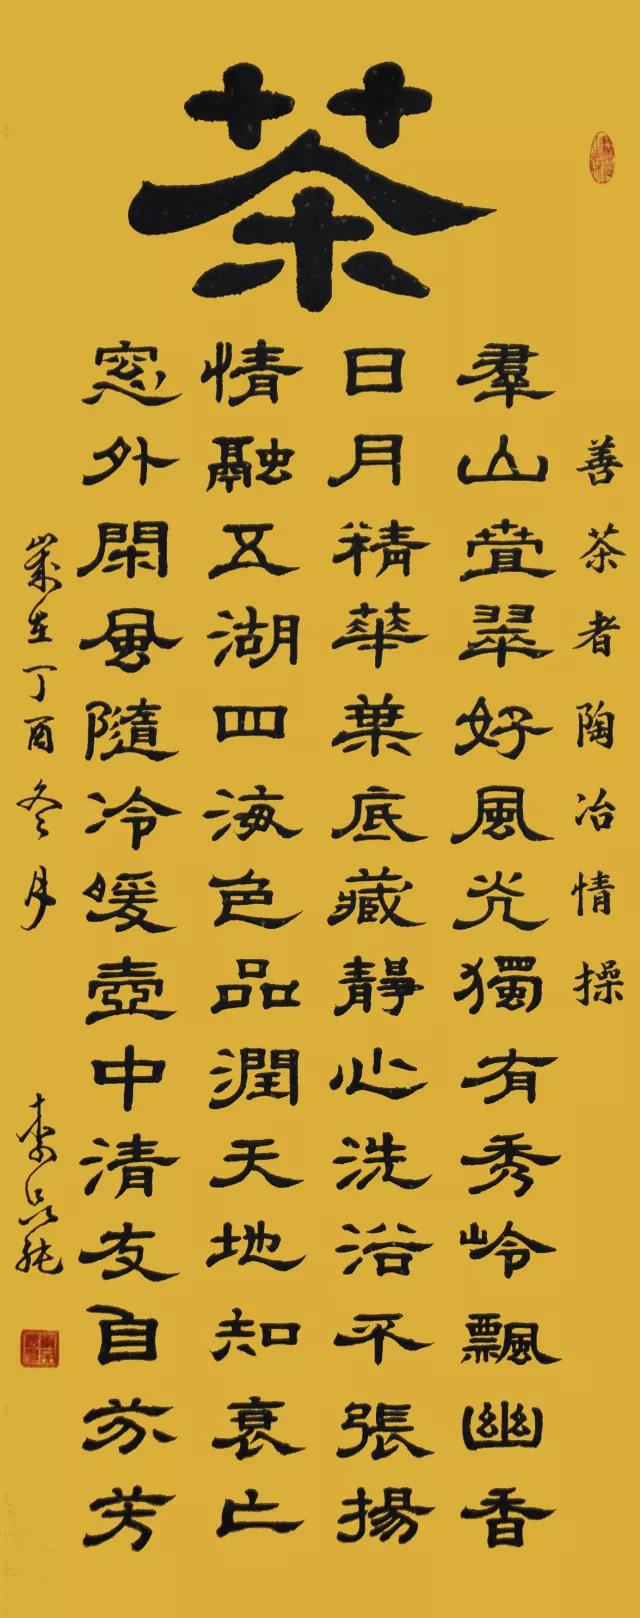 茶
善茶者陶冶情操
羣山疊翠好風光獨有秀岭飄幽香
日月精華葉底藏靜心洗浴平張揚
情融五湖四海色品潤天地知衰亡
窓外閑風隨冷暖壺中清友自芬芳
歲在丁酉冬月
李